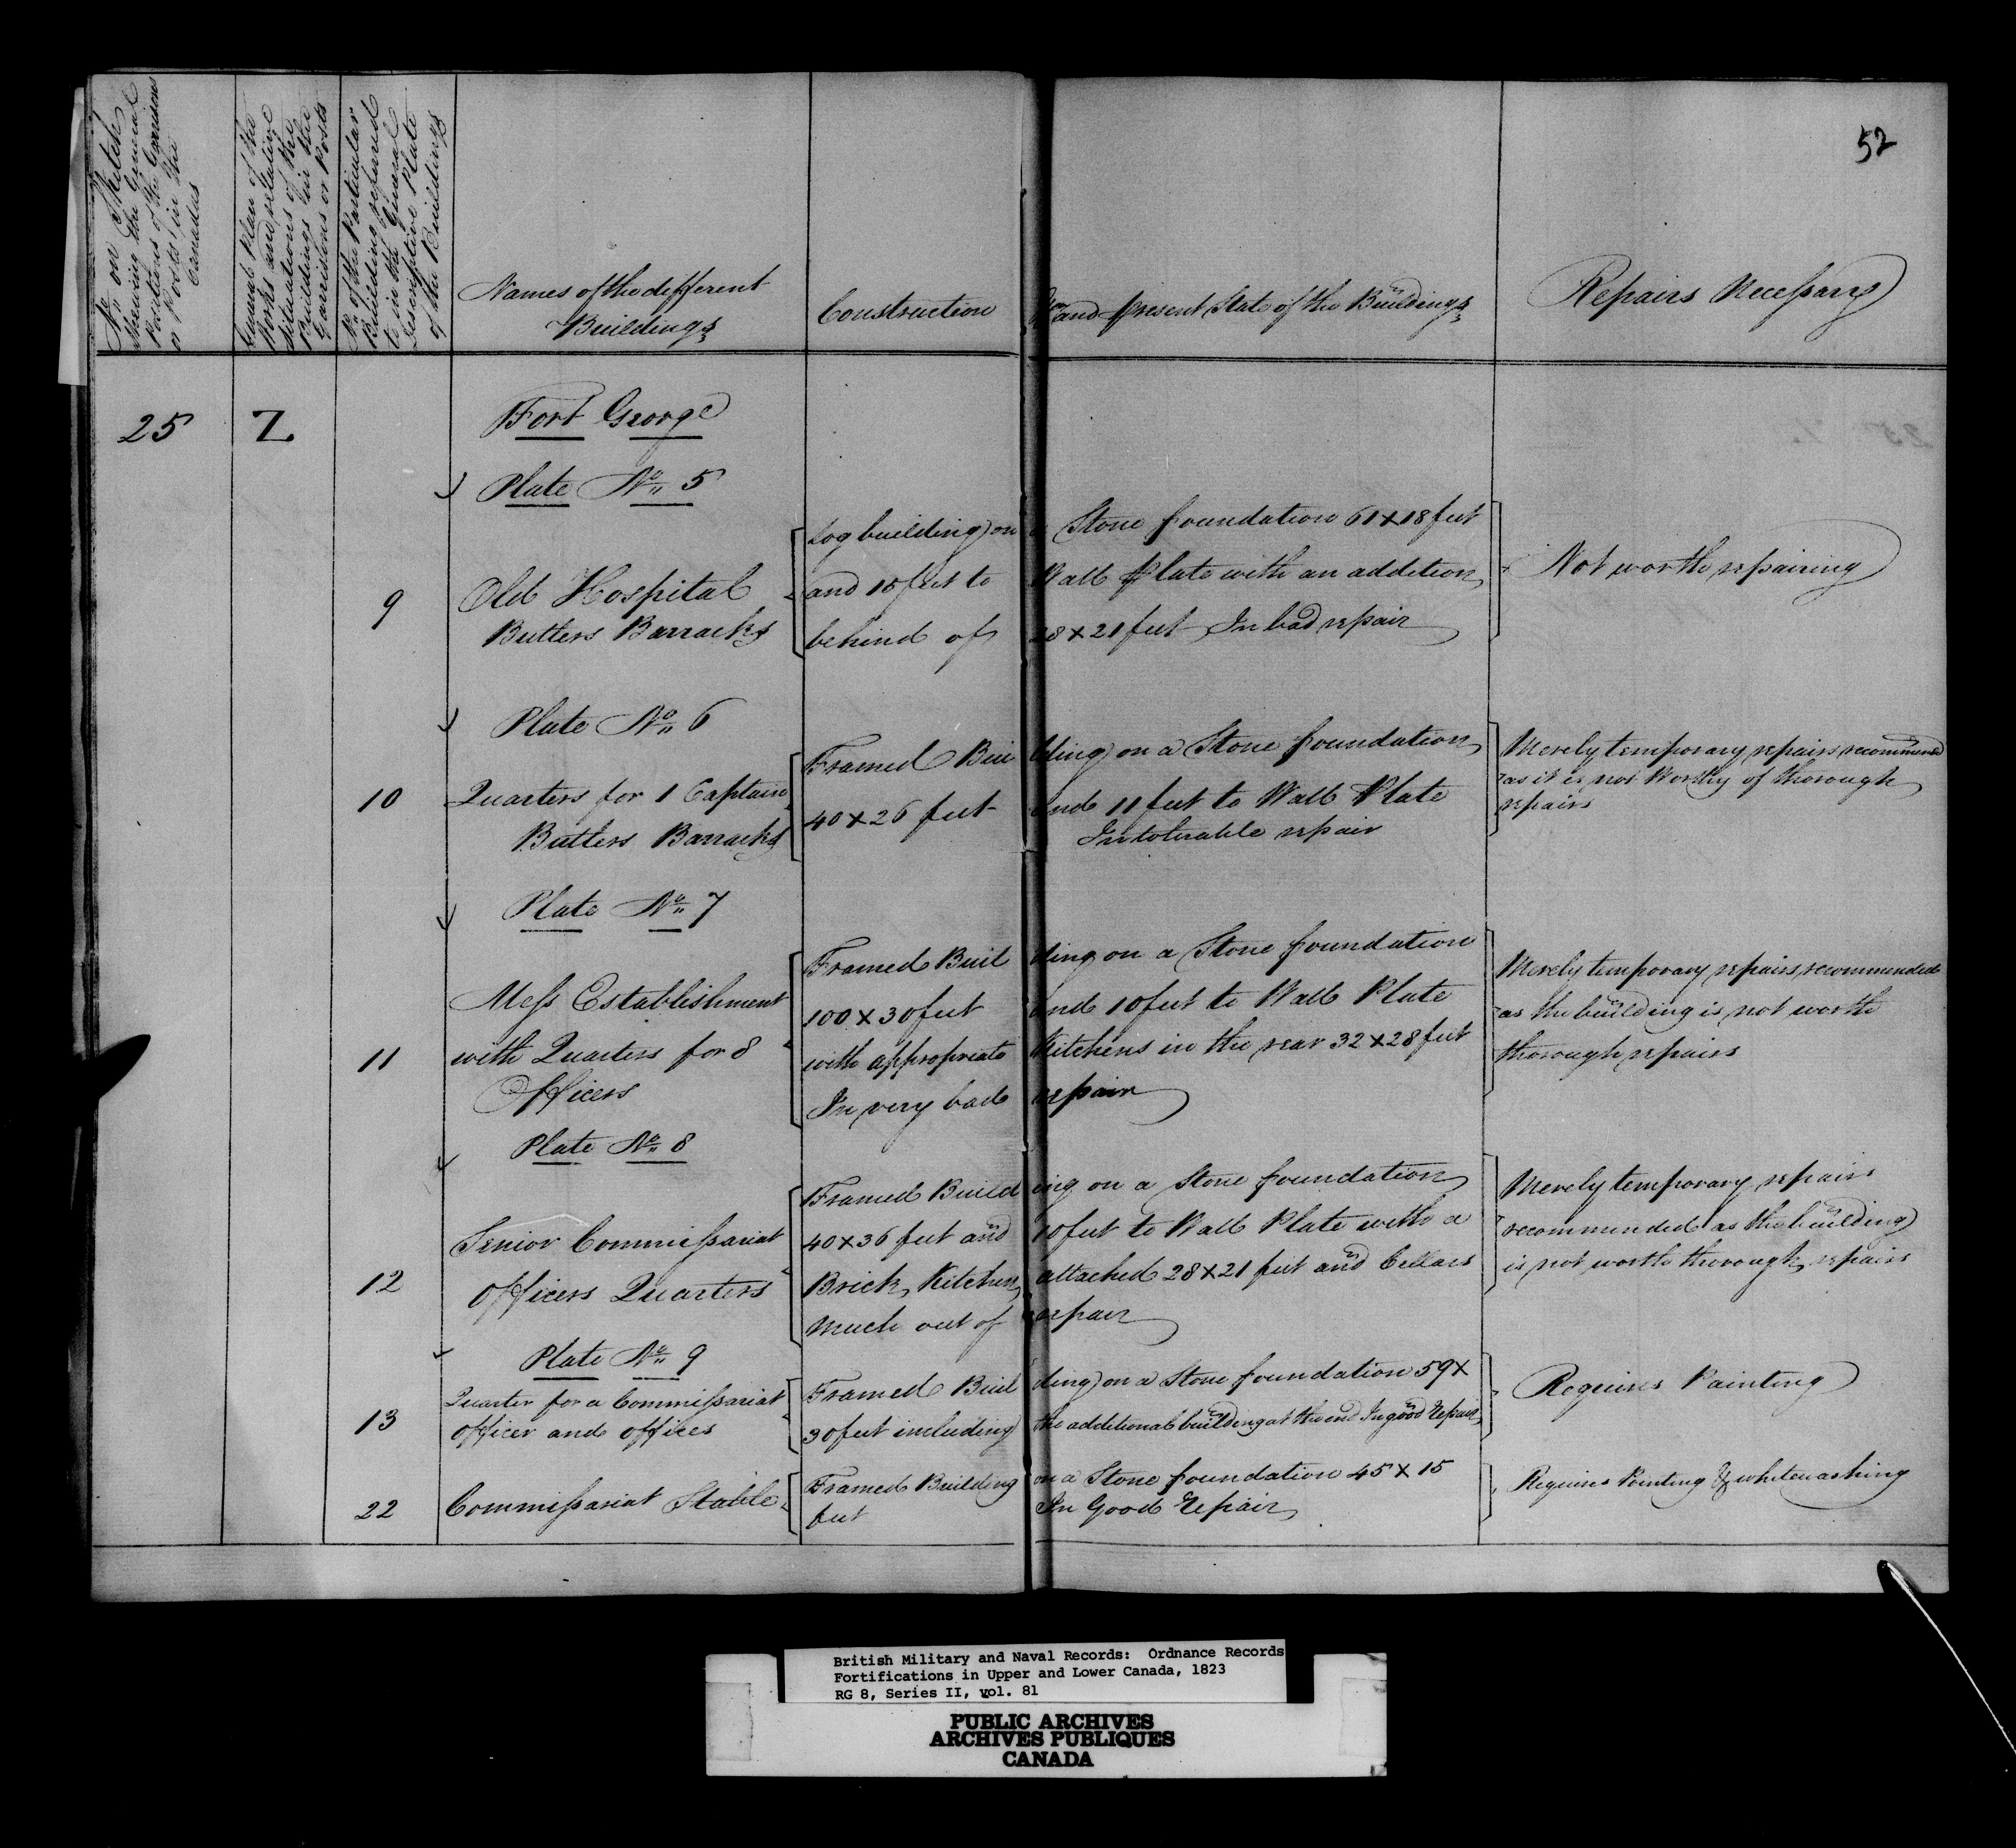 52
No. on Sketch
Shewing the General
Positions of the Garrisons
or Posts in the
Canadas
General Plan of the
Works and relative
Situations of the
Buildings in the
Garrisons or Posts
No. of the Particular
Building referred
to in the General
descriptive Plate
of the Buildings
Names of the different
Buildings
Construction and present State of the Buildings
Repairs Necessary
25 Z Fort George
Plate No. 5
9
Old Hospital
Butlers Barracks
Log building on a Stone foundation 61 x 18 feet
and 10 feet to Wall Plate with an addition
behind of 28 x 21 feet In bad repair
Not worth repairing
Plate No. 6
10
Quarters for 1 Captain
Butlers Barracks
Framed Building on a Stone foundation
40 x 26 feet and 11 feet to Wall Plate
In tolerable repair
Merely temporary repairs recommend
as it is not Worthy of thorough
repairs
Plate No. 7
11
Mess Establishment
with Quarters for 8
Officers
Framed Building on a Stone foundation
100 x 30 feet and 10 feet to Wall Plate
with appropriate Kitchens in the rear 32 x 28 feet
In very bad repair
Merely temporary repairs recommended
as the building is not worth
thorough repairs
Plate No. 8
12
Senior Commissariat
Officers Quarters
Framed Building on a Stone foundation
40 x 36 feet and 10 feet to Wall Plate with a
Brick Kitchen attached 28 x 21 feet and Cellars
Much out of repair
Merely temporary repairs
recommended as the building
is not worth thorough repairs
Plate No. 9
13
Quarter for a Commissariat
Officer and offices
Framed Building on a Stone foundation 59 x
30 feet including the additional building at the end In good Repair
Requires Painting
22
Commissariat Stable
Framed Building on a Stone foundation 45 x 15
feet In Good Repair
Requires Painting & whitewashing
British Military and Naval Records: Ordnance Records
Fortifications in Upper and Lower Canada, 1823
RG 8, Series II, vol. 81
PUBLIC ARCHIVES
ARCHIVES PUBLIQUES
CANADA